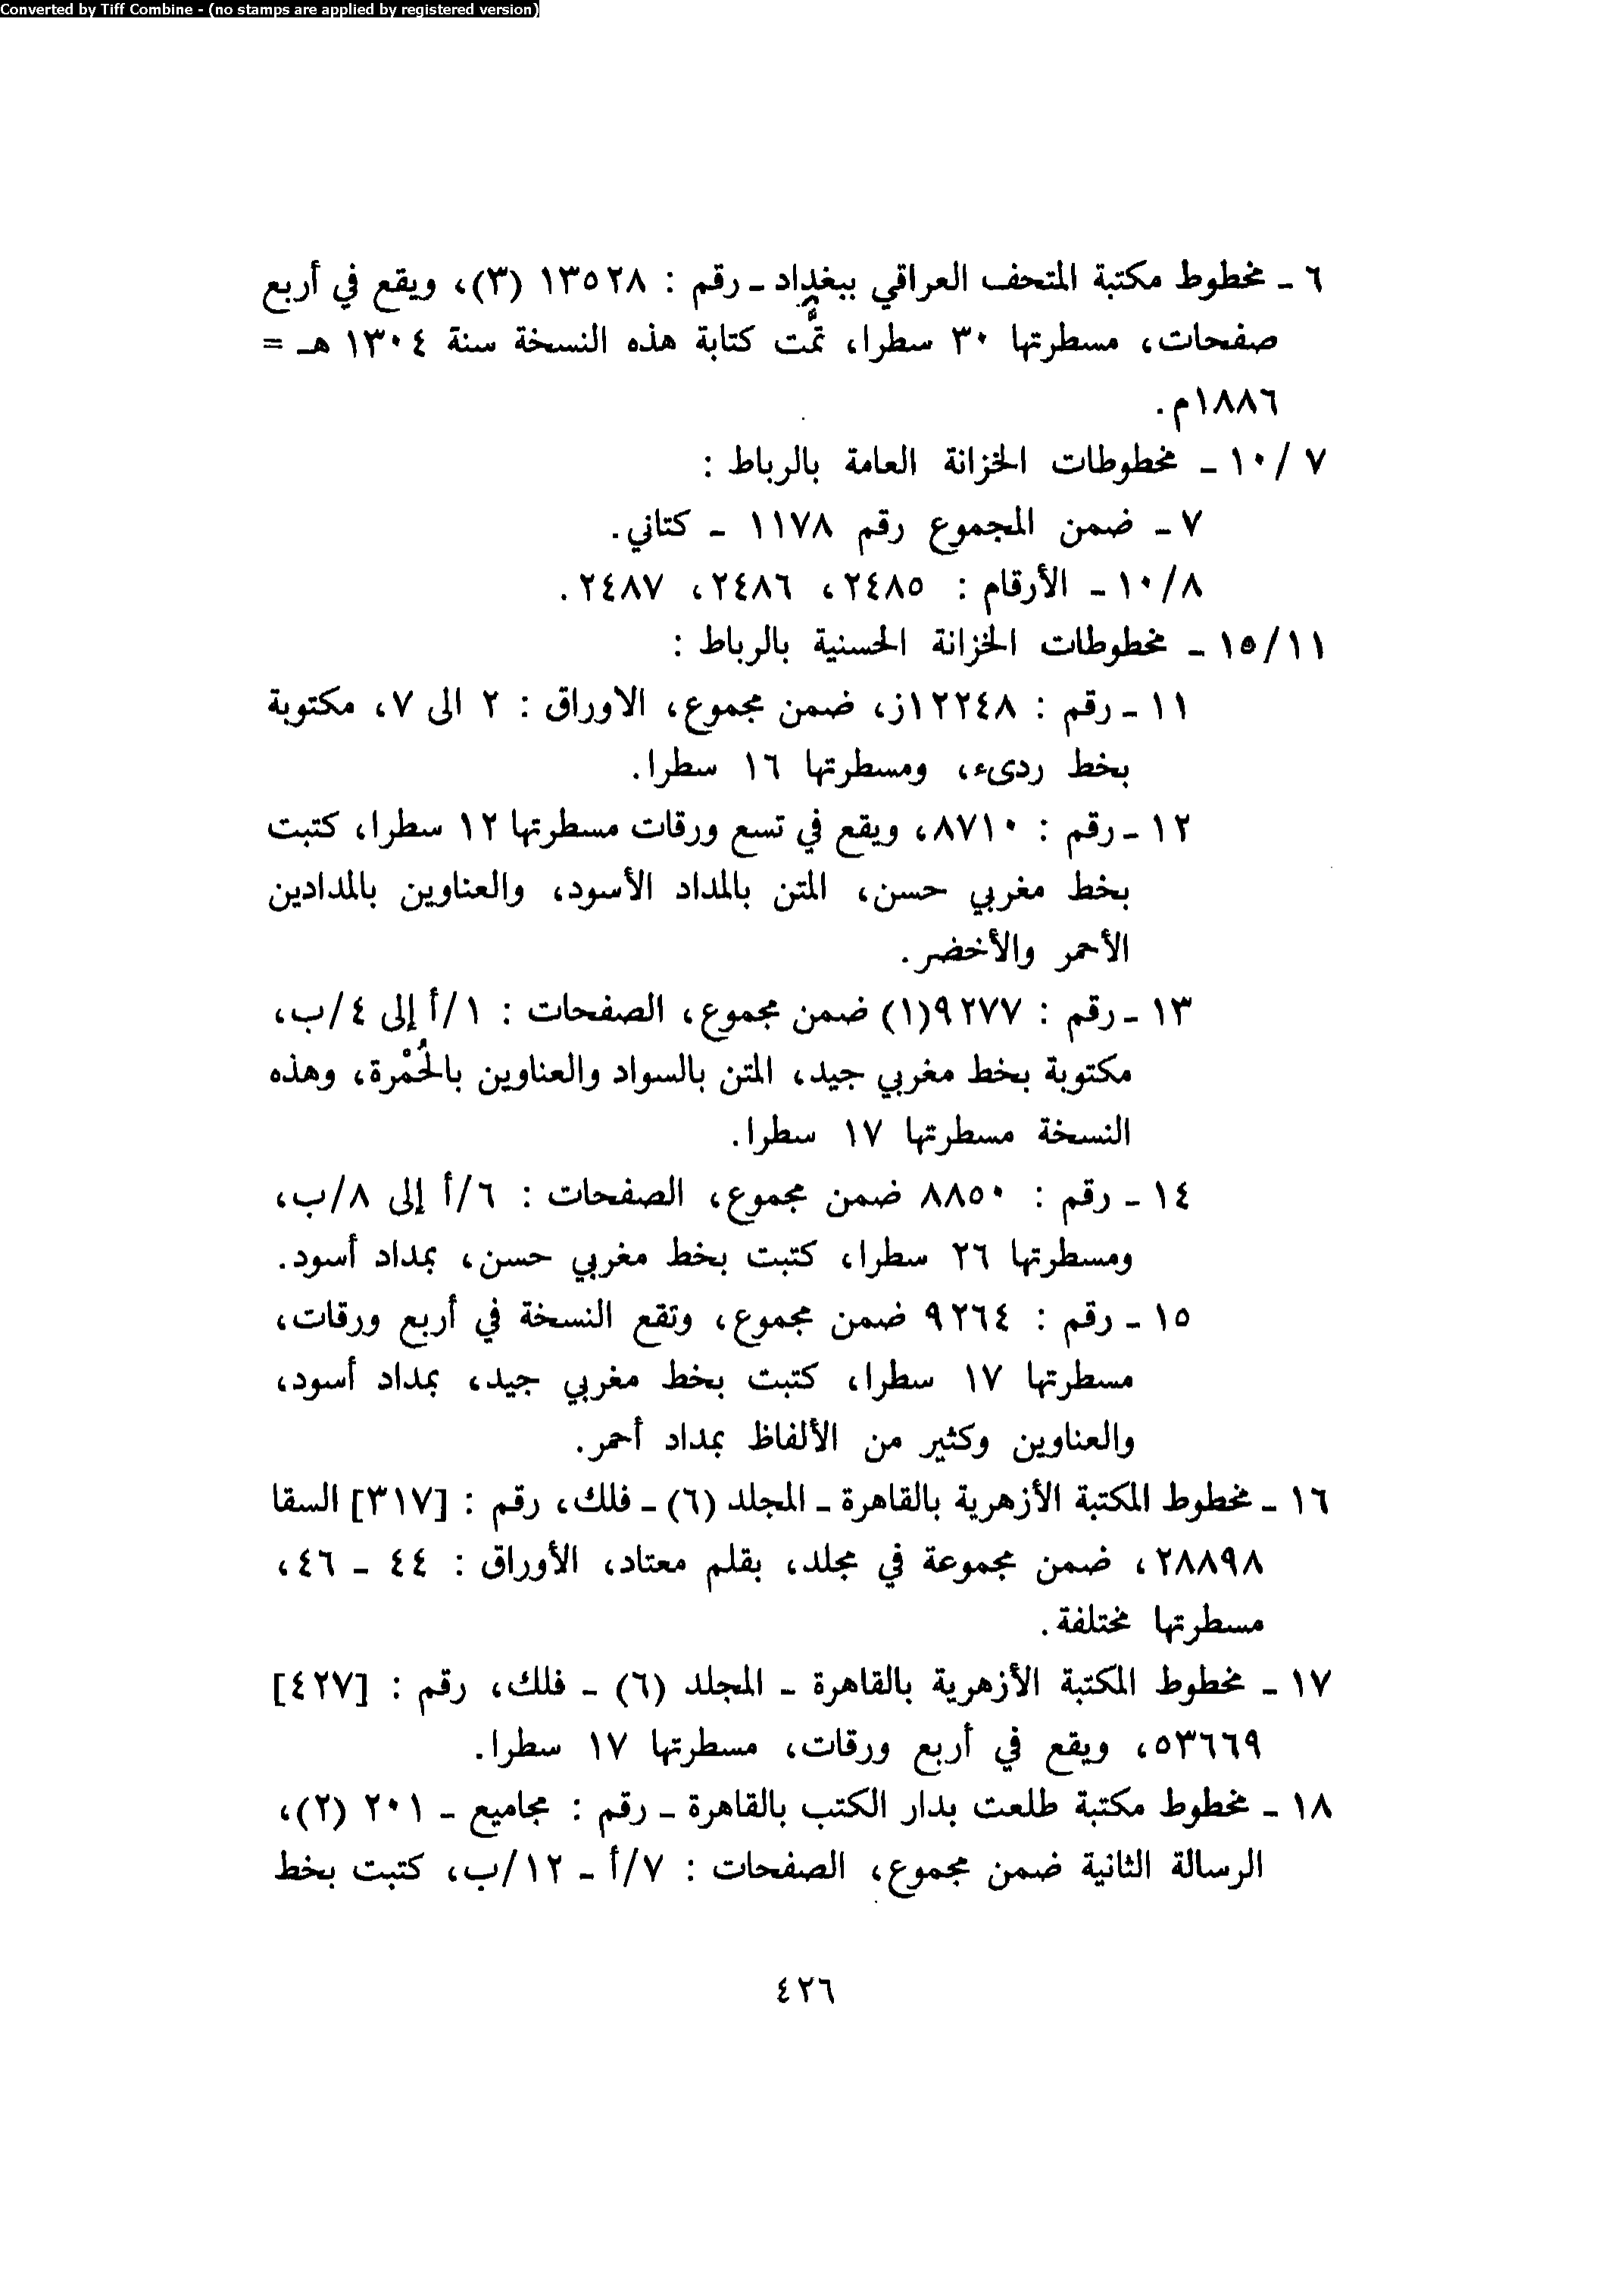 Converted by Tiff Combine - (no stamps are applied by registered version)
٦ - مخطوط مكتبة المتحف العراقي ببغداد - رقم : ١٣٥٢٨ (٣)، ويقع في أربع
صفحات، مسطرتها ٣٠ سطرا، تمَّت كتابة هذه النسخة سنة ١٣٠٤ هـ =
١٨٨٦م.
١٠/٧ - مخطوطات الخزانة العامة بالرباط :
٧ - ضمن المجموع رقم ١١٧٨ - كتاني.
١٠/٨ - الأرقام : ٢٤٨٥، ٢٤٨٦، ٢٤٨٧.
١٥/١١ - مخطوطات الخزانة الحسنية بالرباط :
١١ - رقم : ١٢٢٤٨ز، ضمن مجموع، الاوراق : ٢ الى ٧، مكتوبة
بخط ردىء، ومسطرتها ١٦ سطرا.
١٢ - رقم : ٨٧١٠، ويقع في تسع ورقات مسطرتها ١٢ سطرا، كتبت
بخط مغربي حسن، المتن بالمداد الأسود، والعناوين بالمدادين
الأحمر والأخضر.
١٣ - رقم : ٩٢٧٧(١) ضمن مجموع، الصفحات : ١/أ إلى ٤/ب،
مكتوبة بخط مغربي جيد، المتن بالسواد والعناوين بالحُمْرة، وهذه
النسخة مسطرتها ١٧ سطرا.
١٤ - رقم : ٨٨٥٠ ضمن مجموع، الصفحات : ٦/أ إلى ٨/ب،
ومسطرتها ٢٦ سطرا، كتبت بخط مغربي حسن، بمداد أسود.
١٥ - رقم : ٩٢٦٤ ضمن مجموع، وتقع النسخة في أربع ورقات،
مسطرتها ١٧ سطرا، كتبت بخط مغربي جيد، بمداد أسود،
والعناوين وكثير من الألفاظ بمداد أحمر.
١٦ - مخطوط المكتبة الأزهرية بالقاهرة - المجلد (٦) - فلك، رقم : [٣١٧] السقا
٢٨٨٩٨، ضمن مجموعة في مجلد، بقلم معتاد، الأوراق : ٤٤ - ٤٦،
مسطرتها مختلفة.
١٧ - مخطوط المكتبة الأزهرية بالقاهرة - المجلد (٦) - فلك، رقم : [٤٢٧]
٥٣٦٦٩، ويقع في أربع ورقات، مسطرتها ١٧ سطرا.
١٨ - مخطوط مكتبة طلعت بدار الكتب بالقاهرة - رقم : مجاميع - ٢٠١ (٢)،
الرسالة الثانية ضمن مجموع، الصفحات : ٧/أ - ١٢/ب، كتبت بخط
٤٢٦